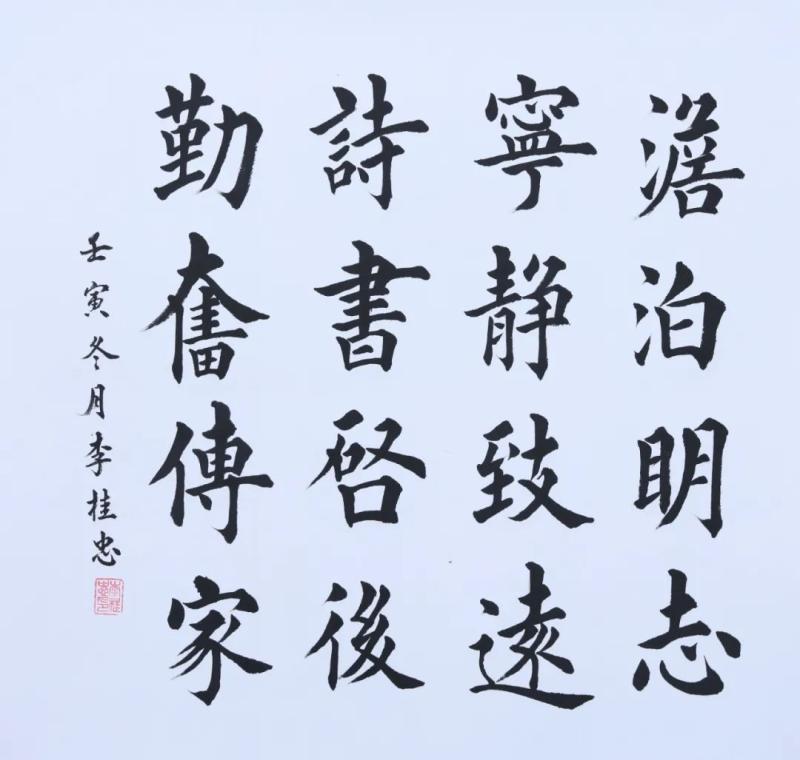 澹泊明志
寧静致遠
詩書啓後
勤奮傳家
壬寅冬月李桂忠